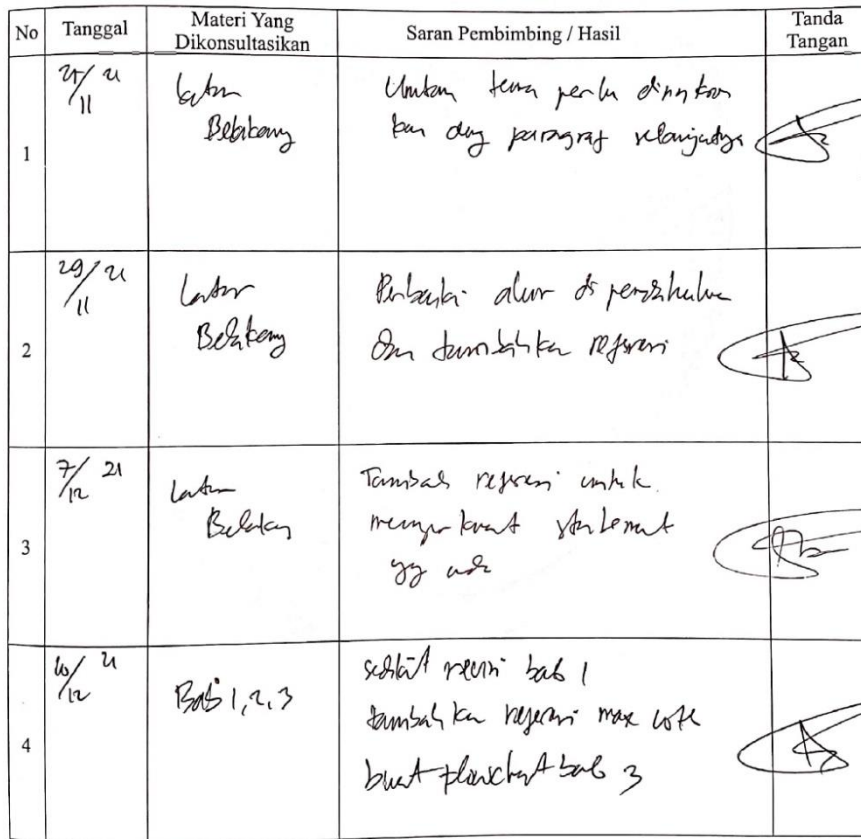 No
Tanggal
Materi Yang
Dikonsultasikan
Saran Pembimbing / Hasil
Tanda
Tangan
1
11
Latar
Belakang
perlu
paragraf selanjutnya
2
29/11 21
Latar
Belakang
Perbaiki alur di pendahuluan
dan tambahkan referensi
3
7/12 21
Latar
Belakang
Tambah referensi untuk
memperkuat statement
yg ada
4
21
12
Bab 1, 2, 3
revisi bab 1
tambahkan referensi max
buat flowchart bab 3